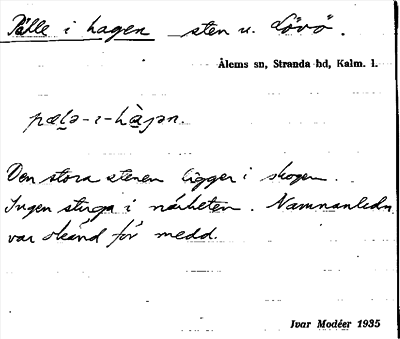 Pälle i hagen sten u. Lövö.
Ålems sn, Stranda hd, Kalm. l.
pælə-ı-hàgən.
Den stora stenen ligger i skogen.
Ingen stuga i närheten. Namnanledn.
var okänd för medd.
Ivar Modéer 1935